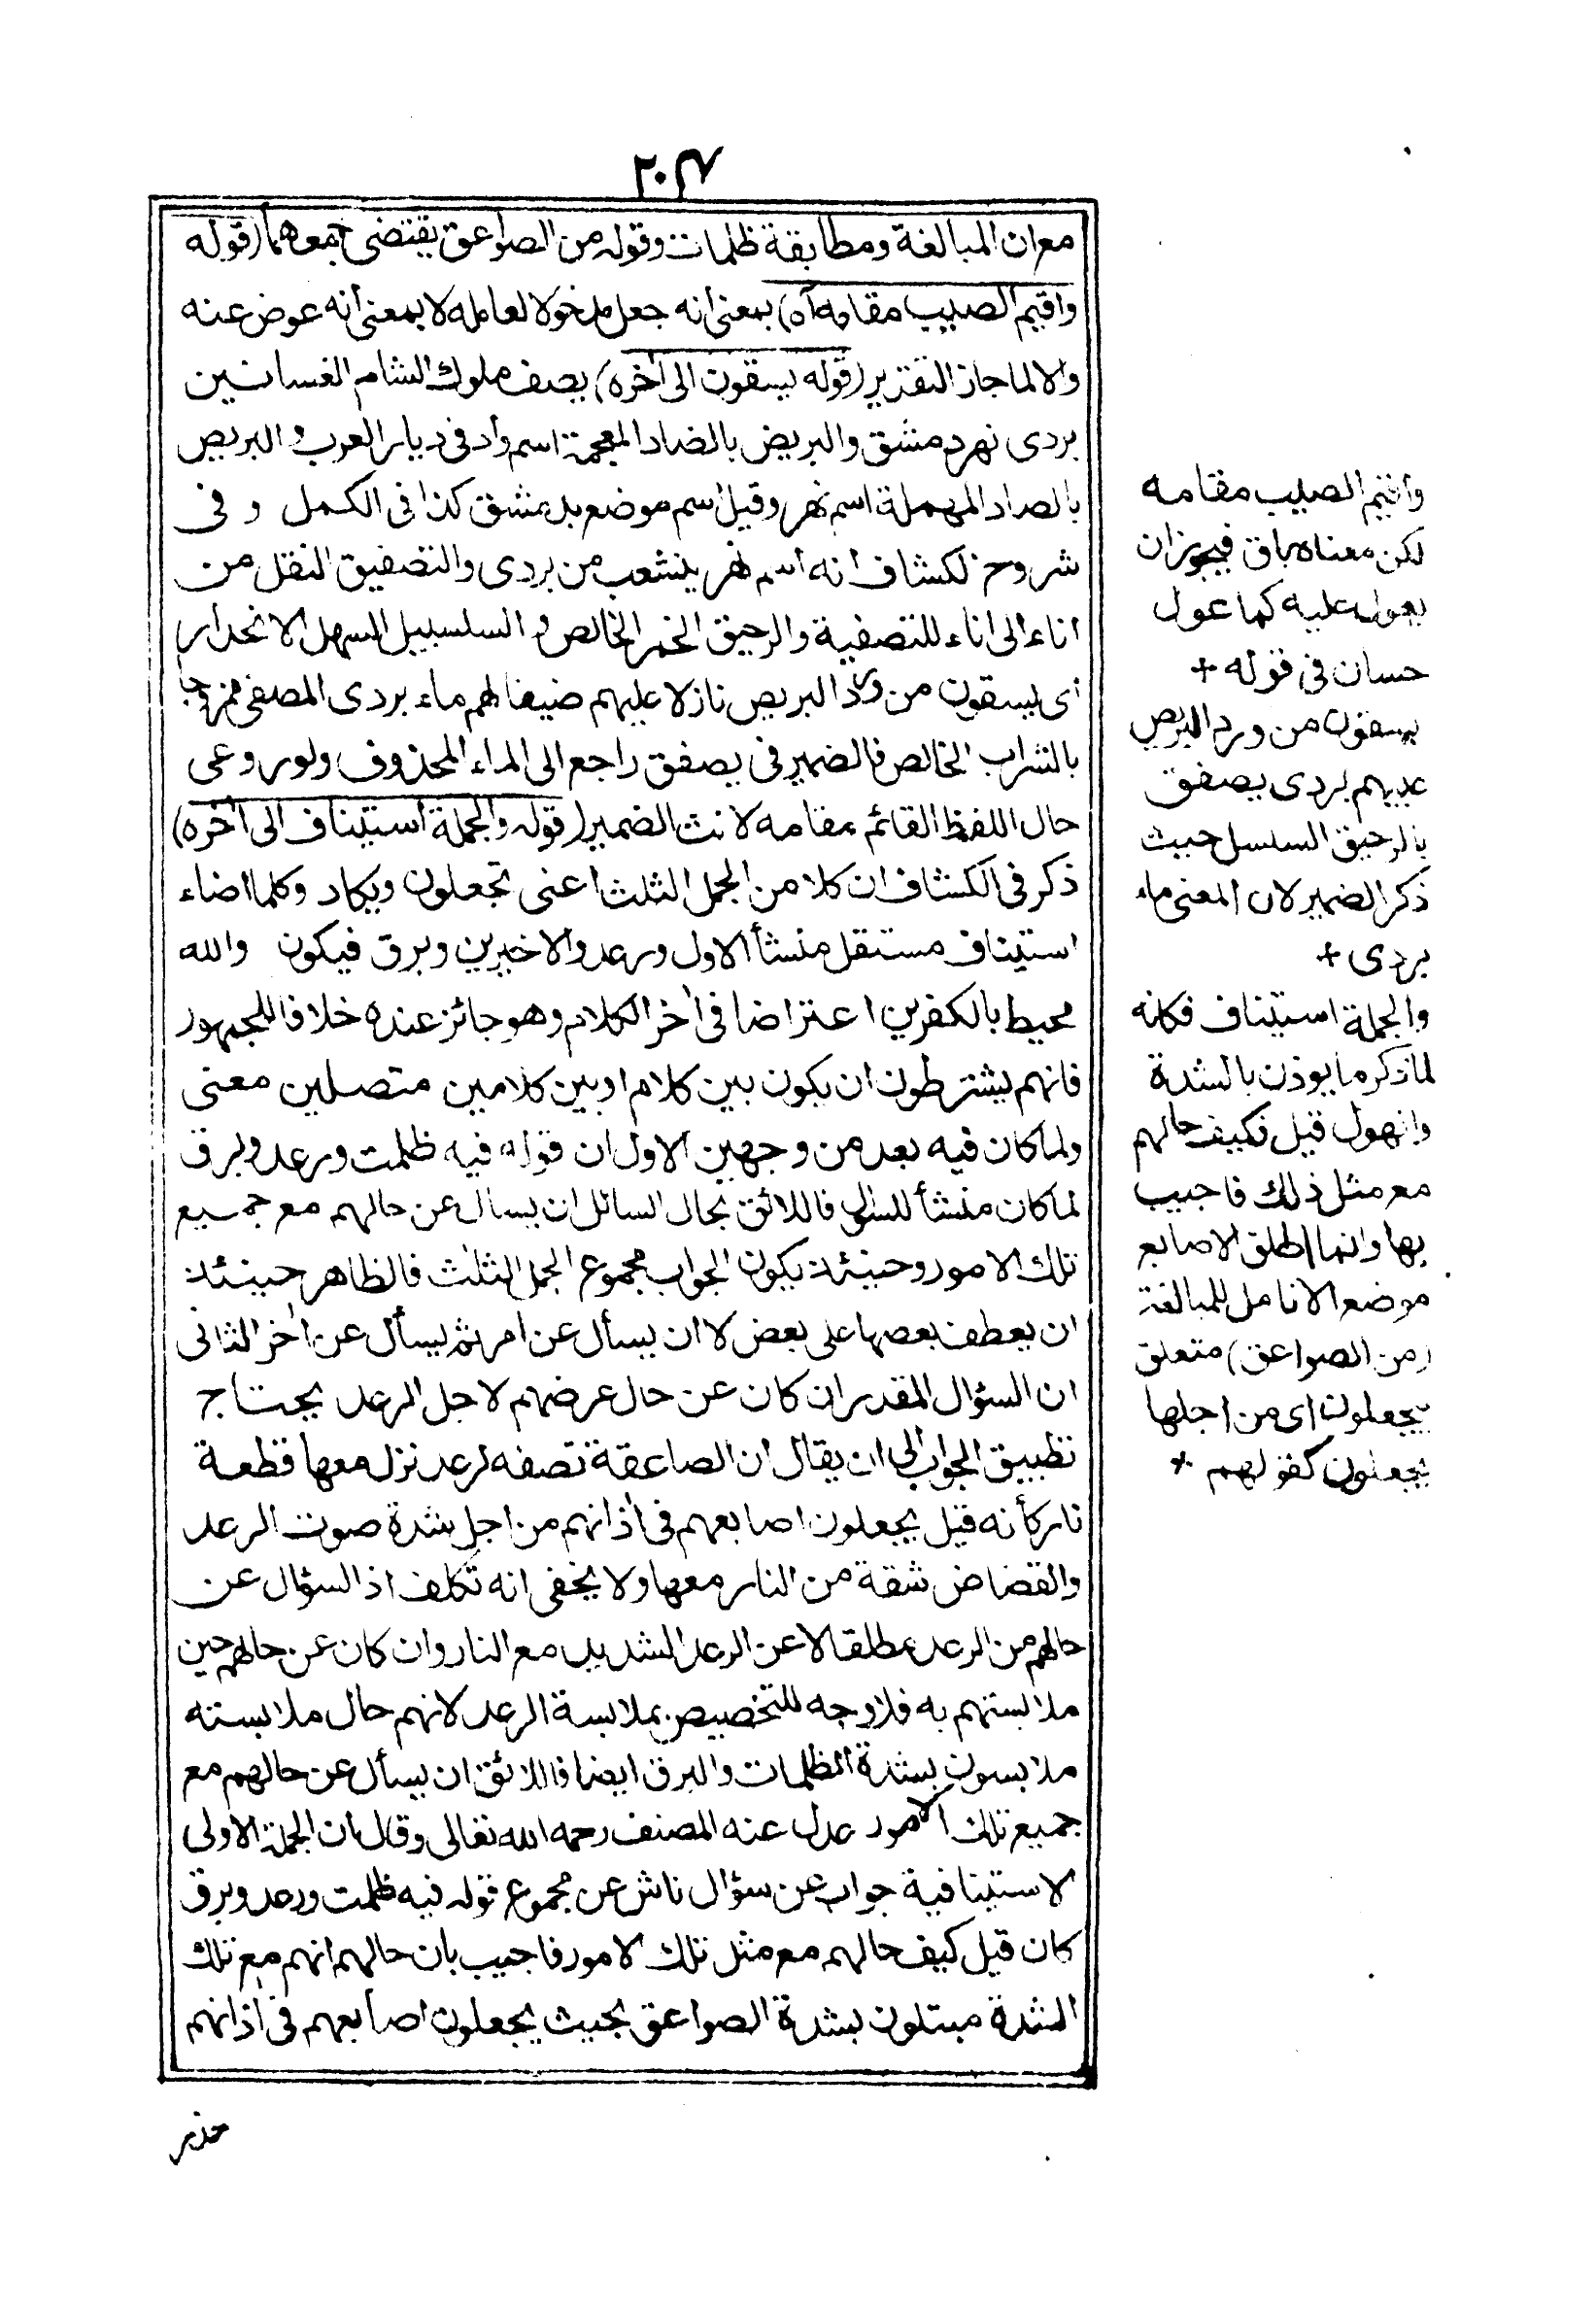 ٢٠٤
مع ان المبالغة ومطابقة ظلمات وقوله من الصواعق يقتضى جمعهما (قوله
واقيم الصيب مقامه آه) بمعنى انه جعل مدخولا لعامله لا بمعنى انه عوض عنه
والا لما جاز التقدير (قوله يسقون الى آخره) يصف ملوك الشام الغسانين
بردى نهر دمشق والبريض بالضاد المعجمة اسم واد فى ديار العرب والبريص
بالصاد المهملة اسم نهر وقيل اسم موضع بدمشق كذا فى الكمل وفى
شروح لكشاف انه اسم نهر ينشعب من بردى والتصفيق النقل من
اناء الى اناء للتصفية والرحيق الخمر الخالص و السلسبيل السهل الانحدار
اى يسقون من ورد البريص نازلا عليهم ضيفا لهم ماء بردى المصفى ممزوجا
بالشراب الخالص فالضمير فى يصفق راجع الى الماء المحذوف ولو روعى
حال اللفظ القائم مقامه لانث الضمير (قوله والجملة استيناف الى آخره)
ذكر فى الكشاف ان كلا من الجمل الثلث اعنى تجعلون ويكاد وكلما اضاء
استيناف مستقل منشأ الاول ورعد والاخيرين وبرق فيكون والله
محيط بالكفرين اعتراضا فى آخر الكلام وهو جائز عنده خلافا للجمهور
فانهم يشترطون ان يكون بين كلام او بين كلامين متصلين معنى
ولما كان فيه بعد من وجهين الاول ان قوله فيه ظلمت ورعد وبرق
لما كان منشأ للسؤال فاللائق بحال السائل ان يسأل عن حالهم مع جميع
تلك الامور وحينئذ يكون الجواب مجموع الجمل الثلث فالظاهر حينئذ
ان يعطف بعضها على بعض لا ان يسأل عن امر ثم يسأل عن آخر الثانى
ان السؤال المقدر ان كان عن حال عرضهم لاجل الرعد يحتاج
تطبيق الجواب الى ان يقال ان الصاعقة تصفه لرعد نزل معها قطعة
نار كأنه قيل يجعلون اصابعهم فى آذانهم من اجل شدة صوت الرعد
والقضاض شقة من النار معها ولا يخفى انه تكلف اذ السؤال عن
حالهم من الرعد مطلقا لا عن الرعد الشديد مع النار وان كان عن حالهم حين
ملابستهم به فلا وجه للتخصيص بملابسة الرعد لانهم حال ملابسته
ملابسون بشدة الظلمات والبرق ايضا فاللائق ان يسأل عن حالهم مع
جميع تلك الامور عدل عنه المصنف رحمه الله تعالى وقال ان الجملة الاولى
لاستينافية جواب عن سؤال ناش عن مجموع قوله فيه ظلمت ورعد وبرق
كان قيل كيف حالهم مع مثل تلك لامور فاجيب بان حالهم انهم مع تلك
الشدة مبتلون بشدة الصواعق بحيث يجعلون اصابعهم فى آذانهم
حذر
واقيم الصيب مقامه
لكن معناه باق فيجوز ان
يعول عليه كما عول
حسان فى قوله +
يسقون من ورد البريص
عليهم بردى يصفق
بالرحيق السلسل حيث
ذكر الضمير لان المعنى ماء
بردى +
والجملة استيناف فكانه
لما ذكر ما يوذن بالشدة
والهول قيل فكيف حالهم
مع مثل ذلك فاجيب
بها وانما اطلق الاصابع
موضع الانامل للمبالغة
(من الصواعق) متعلق
بيجعلون اى من اجلها
يجعلون كقولهم *